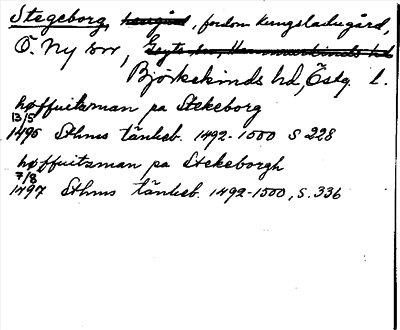 Stegeborg, hovgård, fordom kungsladugård,
Ö. Ny sn,
Björkekinds hd, Östg. l.
høffuitzman pa Stekeborg
13/5
1495 Sthms tänkeb. 1492-1500 S 228
høffuitzman pa Stekeborgh
7/8
1497 Sthms tänkeb. 1492-1500, S. 336